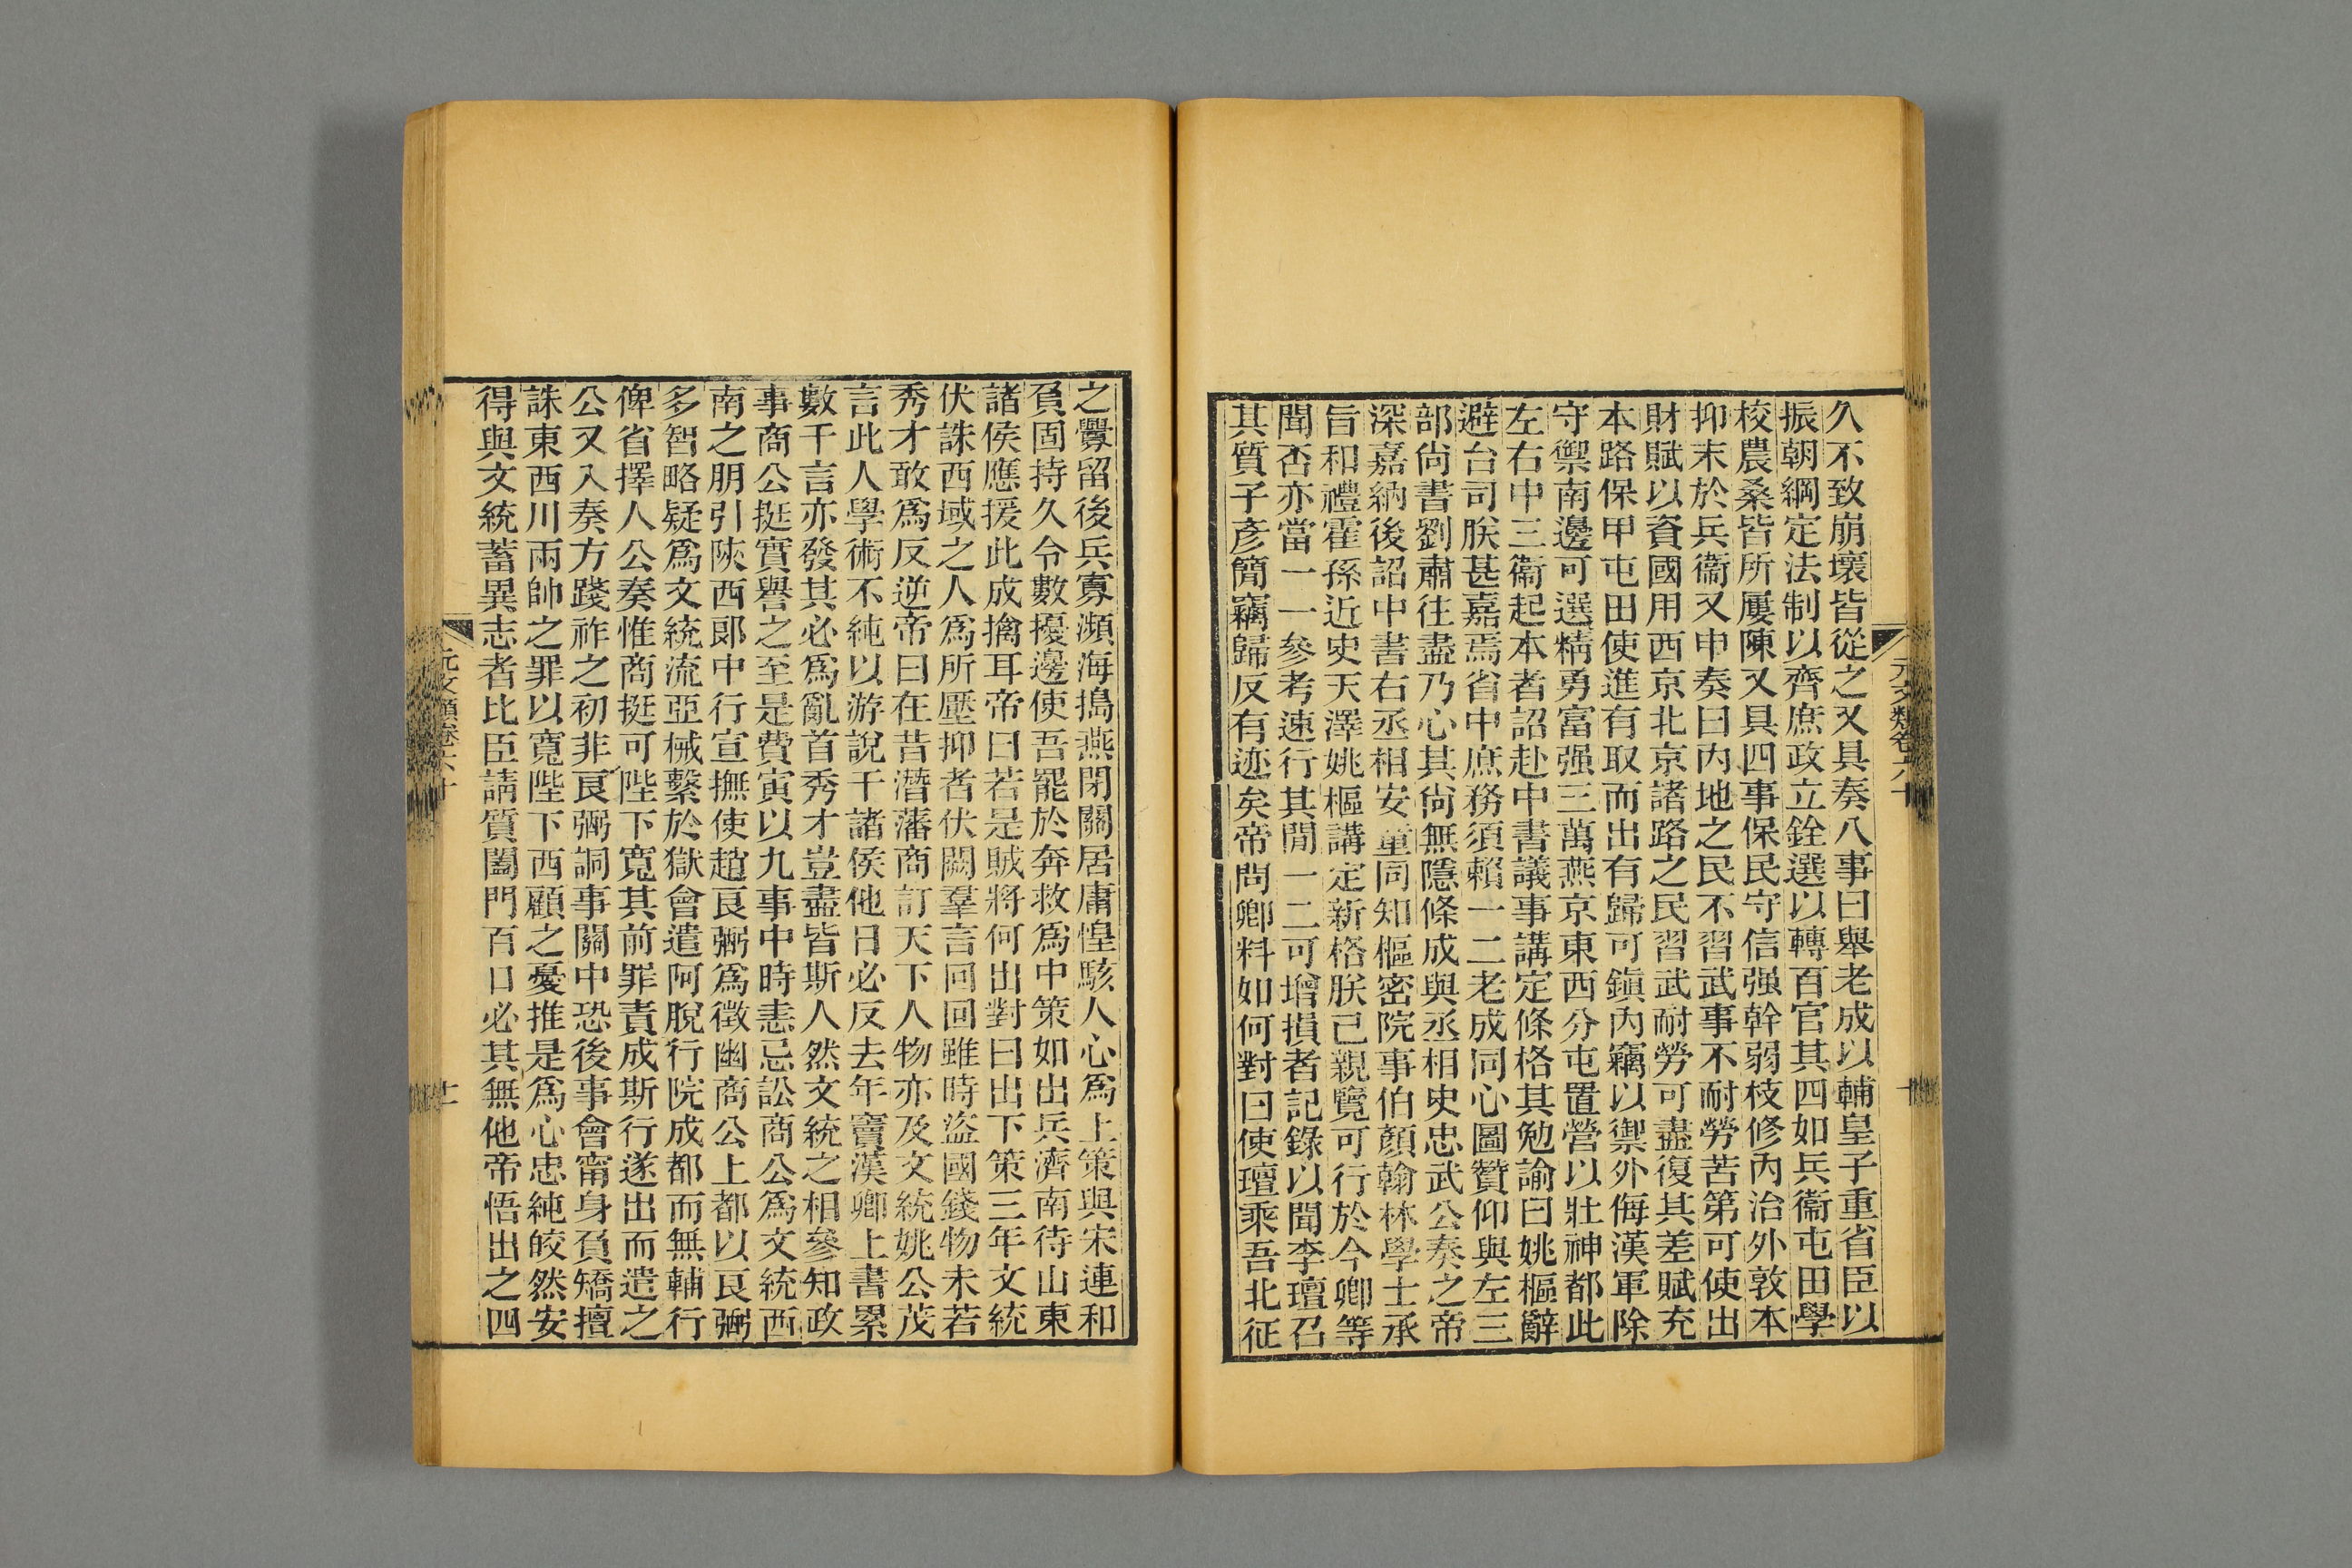 久不致崩壞皆從之又具奏八事曰舉老成以輔皇子重省臣以
振朝綱定法制以齊庶政立銓選以轉百官其四如兵衞屯田學
校農桑皆所屢陳又具四事保民守信强幹弱枝修內治外敦本
抑末於兵衞又申奏曰內地之民不習武事不耐勞苦第可使出
財賦以資國用西京北京諸路之民習武耐勞可盡復其差賦充
本路保甲屯田使進有取而出有歸可鎭內竊以禦外侮漢軍除
守禦南邊可選精勇富强三萬燕京東西分屯置營以壯神都此
左右中三衞起本者詔赴中書議事講定條格其勉諭曰姚樞辭
避台司朕甚嘉焉省中庶務須賴一二老成同心圖贊仰與左三
部尙書劉肅往盡乃心其尙無隱條成與丞相史忠武公奏之帝
深嘉納後詔中書右丞相安童同知樞密院事伯顏翰林學士承
旨和禮霍孫近史天澤姚樞講定新格朕已親覽可行於今卿等
聞否亦當一一參考速行其閒一二可增損者記錄以聞李璮召
其質子彥簡竊歸反有迹矣帝問卿料如何對曰使璮乘吾北征
之釁留後兵寡瀕海搗燕閉關居庸惶駭人心爲上策與宋連和
負固持久令數擾邊使吾罷於奔救爲中策如出兵濟南待山東
諸侯應援此成擒耳帝曰若是賊將何出對曰出下策三年文統
伏誅西域之人爲所壓抑者伏闕羣言回回雖時盜國錢物未若
秀才敢爲反逆帝曰在昔潛藩商訂天下人物亦及文統姚公茂
言此人學術不純以游說干諸侯他日必反去年竇漢卿上書累
數千言亦發其必爲亂首秀才豈盡皆斯人然文統之相參知政
事商公挺實譽之至是費寅以九事中時恚忌訟商公爲文統西
南之朋引陝西郞中行宣撫使趙良弼爲徵幽商公上都以良弼
多智略疑爲文統流亞械繫於獄會遣阿脫行院成都而無輔行
俾省擇人公奏惟商挺可陛下寬其前罪責成斯行遂出而遣之
公又入奏方踐祚之初非良弼詷事關中恐後事會甯身負矯擅
誅東西川兩帥之罪以寬陛下西顧之憂推是爲心忠純皎然安
得與文統蓄異志者比臣請質闔門百口必其無他帝悟出之四
元文類卷六十